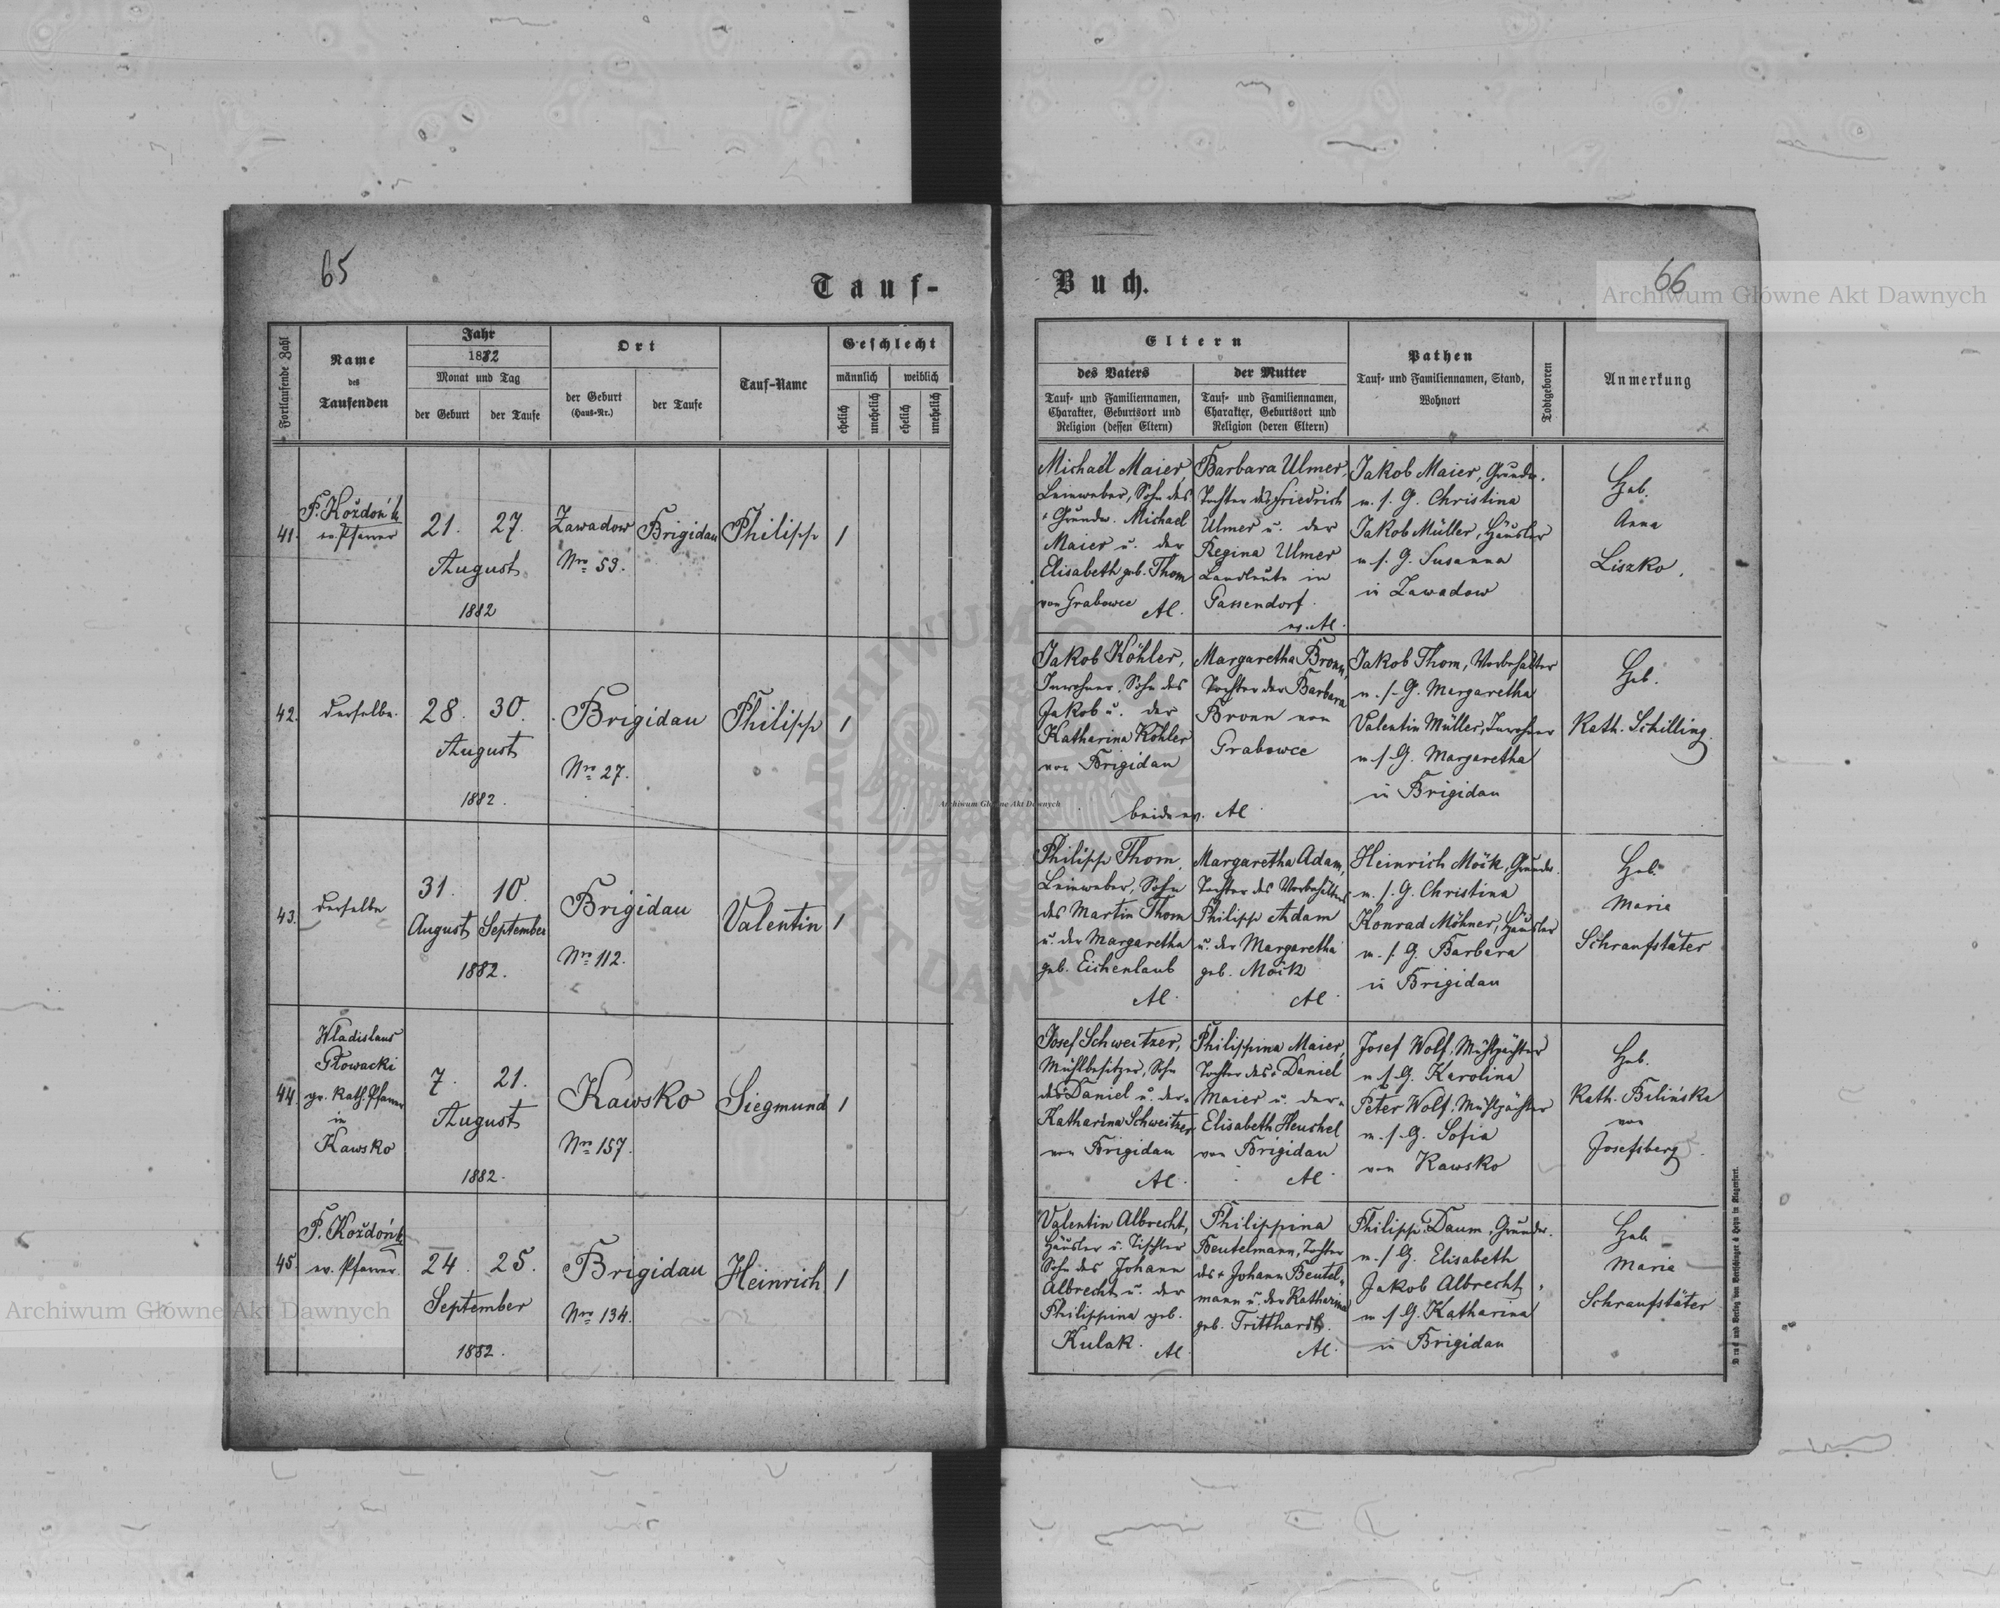 65
66
Archiwum Główne Akt Dawnych
Tauf-
Buch.
Fortlaufende Zahl
Name
des
Taufenden
Jahr
1882
Monat und Tag
der Geburt
der Taufe
Ort
der Geburt
(Haus-Nr.)
der Taufe
Tauf-Name
Geschlecht
männlich
weiblich
ehelich
unehelich
ehelich
unehelich
Eltern
des Vaters
Tauf- und Familiennamen,
Charakter, Geburtsort und
Religion (dessen Eltern)
der Mutter
Tauf- und Familiennamen,
Charakter, Geburtsort und
Religion (deren Eltern)
Pathen
Tauf- und Familiennamen, Stand,
Wohnort
Todtgeboren
Anmerkung
41.
F. Koždoń
ev. Pfarrer
21.
27.
August
1882
Zawadow
Nro 53.
Brigidau
Philipp
1
Michael Maier
Leinweber, Sohn des
+ Grundw. Michael
Maier u. der
Elisabeth geb. Thom
von Grabowce
AC.
Barbara Ulmer,
Tochter des Friedrich
Ulmer u. der
Regina Ulmer
Landleute in
Gassendorf.
ev. AC.
Jakob Maier, Grundw.
u. s. G. Christina
Jakob Müller, Häusler
u. s. G. Susanna
in Zawadow
Heb.
Anna
Liszko.
42.
derselbe.
28.
30.
August
1882.
Brigidau
Nro 27.
Philipp
1
Jakob Köhler,
Inwohner, Sohn des
Jakob u. der
Katharina Köhler
von Brigidau
Margaretha Bronn,
Tochter der Barbara
Bronn von
Grabowce
beide ev. AC
Jakob Thom, Vorbehalter
u. s. G. Margaretha
Valentin Müller, Inwohner
u. s. G. Margaretha
in Brigidau
Heb.
Kath. Schilling.
43.
derselbe
31.
10.
August September
1882.
Brigidau
Nro 112.
Valentin
1
Philipp Thom,
Leinweber, Sohn
des Martin Thom
u. der Margaretha
geb. Eichenlaub
AC.
Margaretha Adam,
Tochter des Vorbehalters
Philipp Adam
u. der Margaretha
geb. Möik
AC.
Heinrich Möik, Grundw.
u. s. G. Christina
Konrad Möhner, Häusler
u. s. G. Barbara
in Brigidau
Heb.
Maria
Schraufstäter
44.
Wladislaus
Głowacki
gr. Kath. Pfarrer
in
Kawsko
7.
21.
August
1882.
Kawsko
Nro 157.
Siegmund
1
Josef Schweitzer,
Mühlbesitzer, Sohn
des Daniel u. der
Katharina Schweitzer
von Brigidau
AC.
Philippina Maier,
Tochter des + Daniel
Maier u. der
Elisabeth Heuchel
von Brigidau
AC.
Josef Wolf, Mühlpächter
u. s. G. Karolina
Peter Wolf, Mühlpächter
u. s. G. Sofia
von Kawsko
Heb.
Kath. Bilińska
von
Josefsberg.
45.
F. Koždoń
ev. Pfarrer.
24.
25.
September
1882.
Brigidau
Nro 134.
Heinrich
1
Valentin Albrecht,
Häusler u. Tischler
Sohn des Johann
Albrecht u. der
Philippina geb.
Kulak.
AC.
Philippina
Beutelmann, Tochter
des + Johann Beutel-
mann u. der Katharina
geb. Tritthardt.
AC.
Philipp Daum, Grundw.
u. s. G. Elisabeth
Jakob Albrecht,
u. s. G. Katharina
in Brigidau
Heb.
Maria
Schraufstäter
Archiwum Główne Akt Dawnych
Archiwum Główne Akt Dawnych